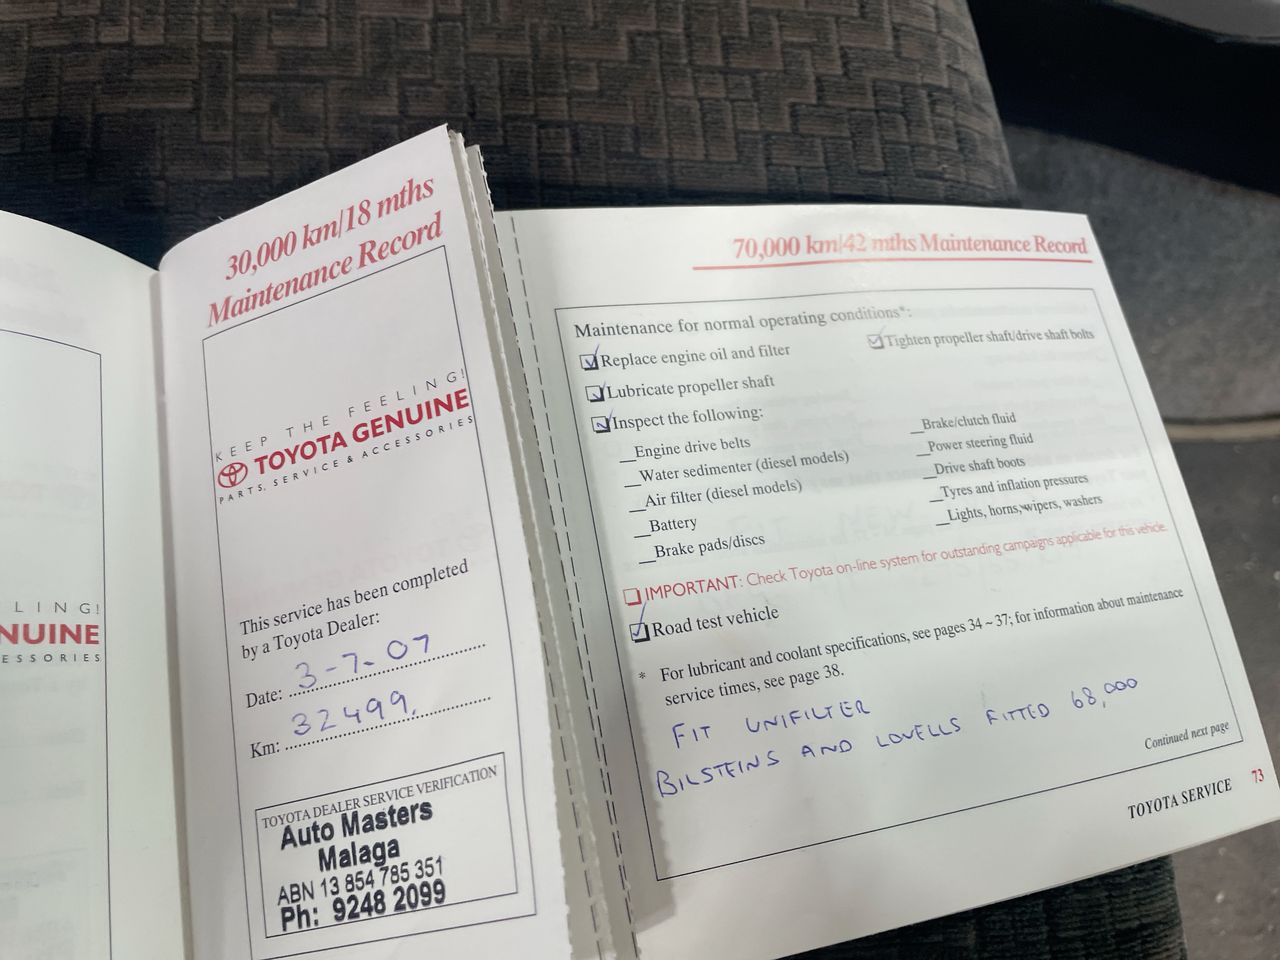 LING!
NUINE
ESSORIES
30,000 km/18 mths
Maintenance Record
KEEP THE FEELING!
TOYOTA GENUINE
PARTS, SERVICE & ACCESSORIES
This service has been completed
by a Toyota Dealer:
Date: 3-7-07
Km: 32499.
TOYOTA DEALER SERVICE VERIFICATION
Auto Masters
Malaga
ABN 13 854 785 351
Ph: 9248 2099
70,000 km/42 mths Maintenance Record
Maintenance for normal operating conditions*:
Replace engine oil and filter
Tighten propeller shaft/drive shaft bolts
Lubricate propeller shaft
Inspect the following:
Engine drive belts
Water sedimenter (diesel models)
Air filter (diesel models)
Battery
Brake pads/discs
Brake/clutch fluid
Power steering fluid
Drive shaft boots
Tyres and inflation pressures
Lights, horns, wipers, washers
IMPORTANT: Check Toyota on-line system for outstanding campaigns applicable for this vehicle.
Road test vehicle
* For lubricant and coolant specifications, see pages 34 ~ 37; for information about maintenance
service times, see page 38.
FIT UNIFILTER
BILSTEINS AND LOVELLS FITTED 68,000
Continued next page
TOYOTA SERVICE 73